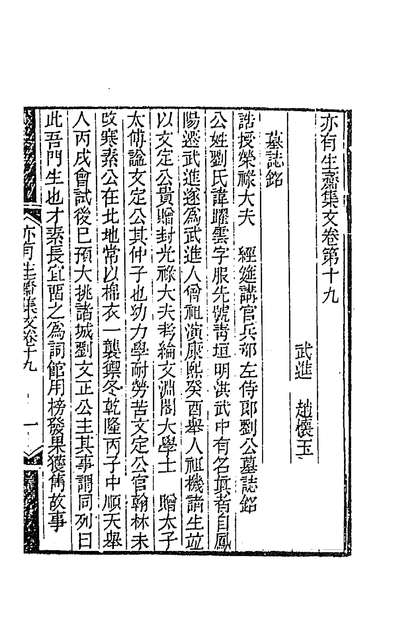 亦有生齋集文卷第十九
武進 趙懷玉
墓誌銘
誥授榮祿大夫 經筵講官兵部左侍郎劉公墓誌銘
公姓劉氏諱躍雲字服先號青垣明洪武中有名真者自鳳
陽遷武進遂為武進人曾祖演康熙癸酉舉人祖機諸生並
以文定公貴贈封光祿大夫考綸文淵閣大學士 贈太子
太傅諡文定公其仲子也幼力學耐勞苦文定公官翰林未
改寒素公在北地常以棉衣一襲禦冬乾隆丙子中順天舉
人丙戌會試後已預大挑諸城劉文正公主其事謂同列曰
此吾門生也才素長宜畱之為詞館用榜發果獲雋故事
亦有生齋集文卷十九 一